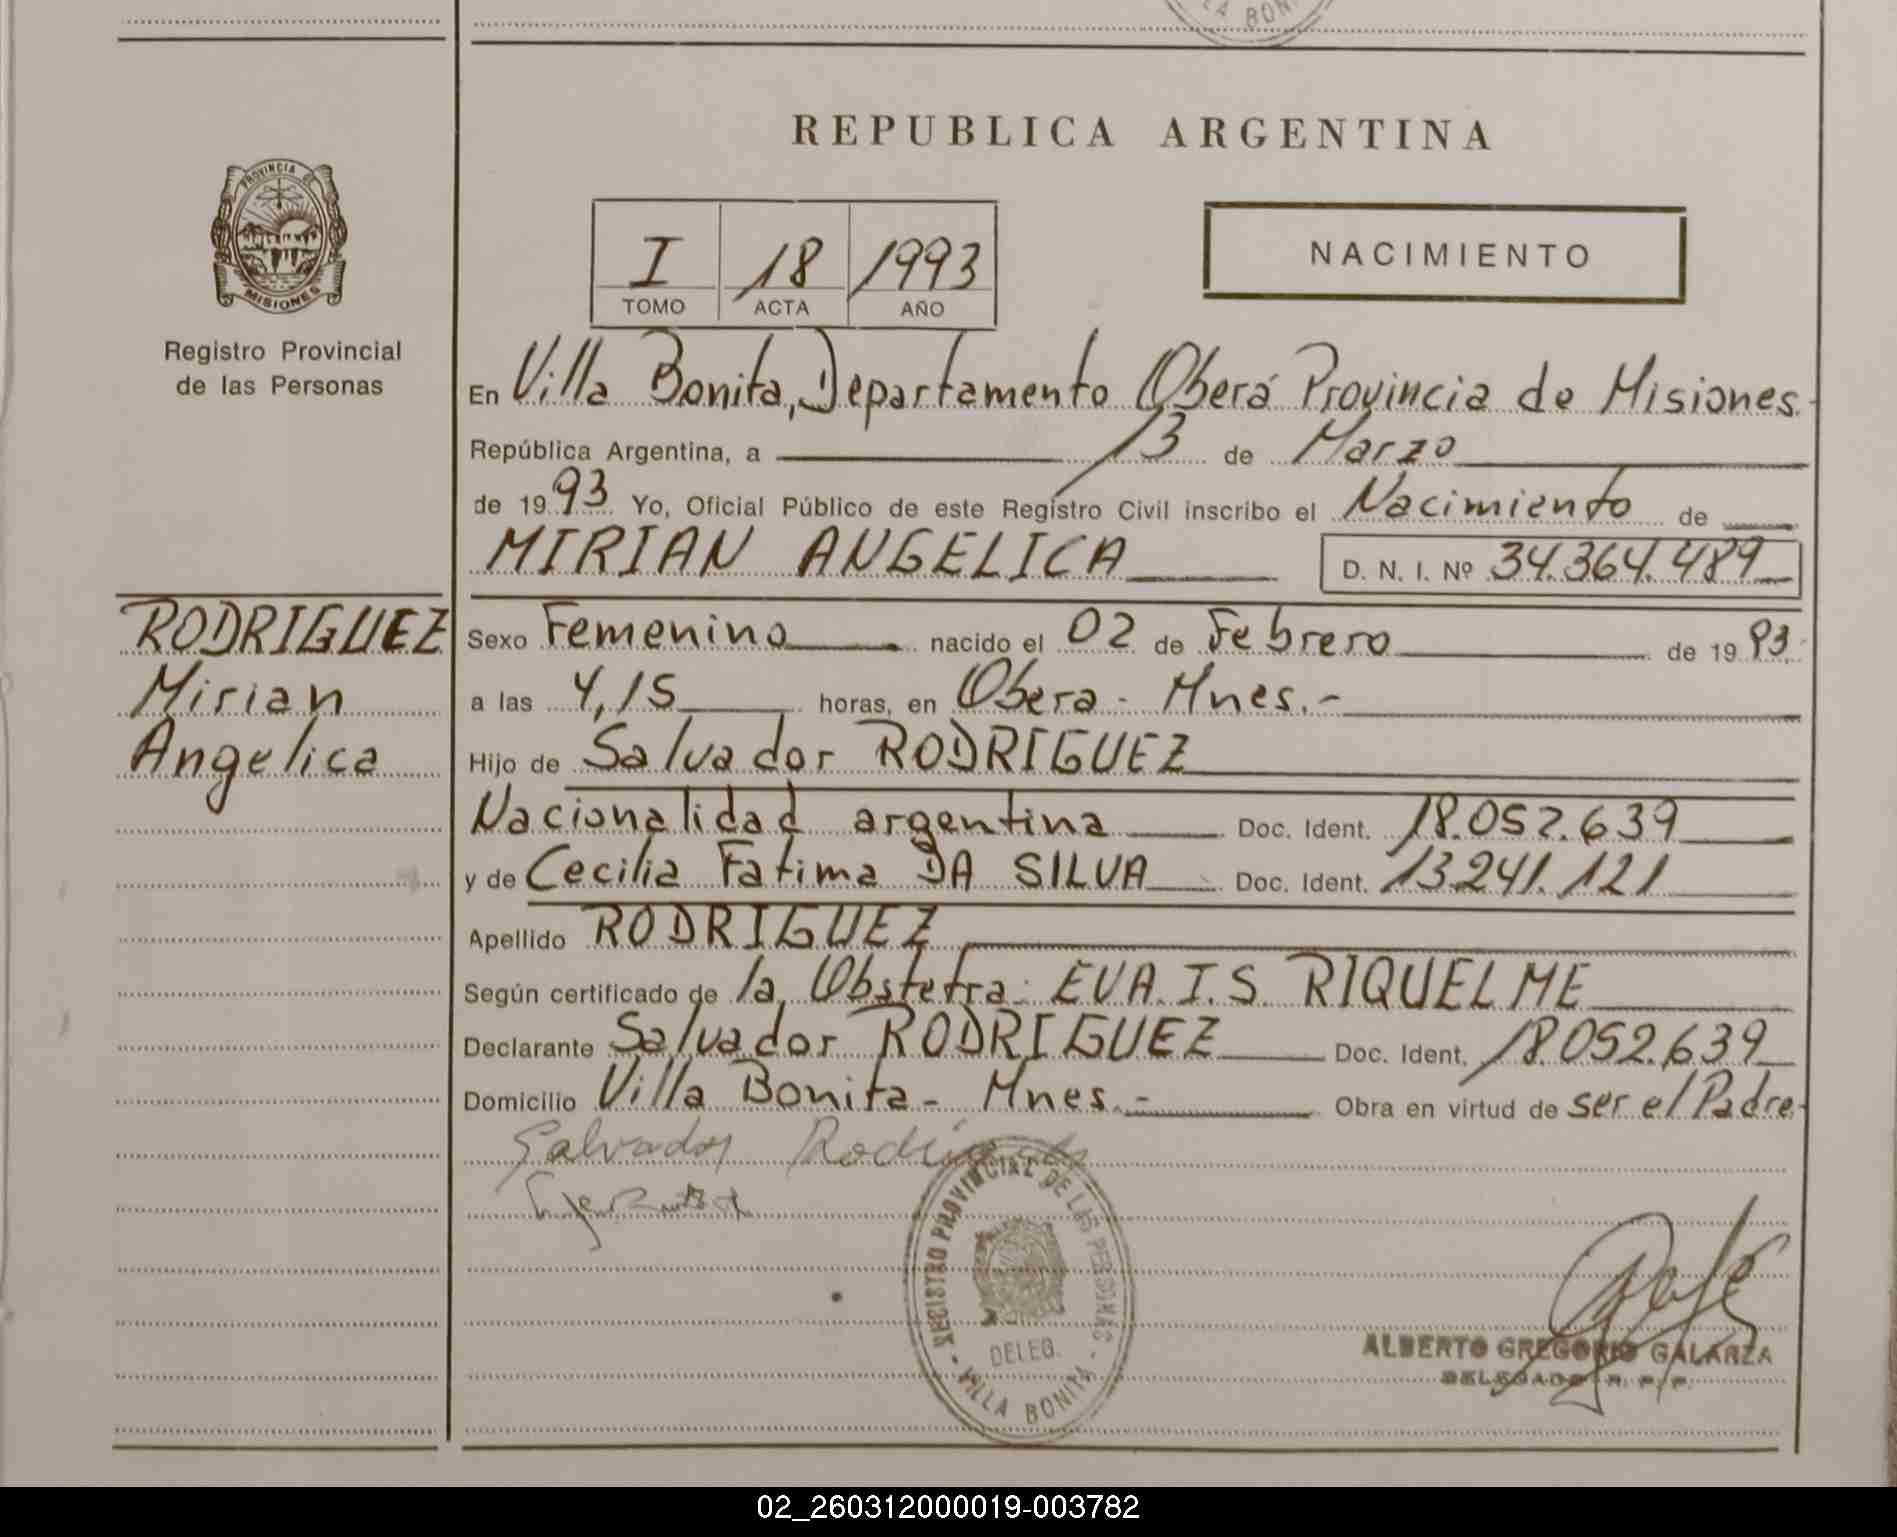 LA BON
REPUBLICA ARGENTINA
PROVINCIA DE
MISIONES
Registro Provincial
de las Personas
I 18 1993
TOMO ACTA AÑO
NACIMIENTO
En Villa Bonita, Departamento Oberá Provincia de Misiones.
República Argentina, a 13 de Marzo
de 1993 Yo, Oficial Público de este Registro Civil inscribo el Nacimiento de
MIRIAN ANGELICA D. N. I. Nº 34.364.489
RODRIGUEZ
Mirian
Angelica
Sexo Femenino nacido el 02 de Febrero de 1993.
a las 4,15 horas, en Obera - Mnes.-
Hijo de Salvador RODRIGUEZ
Nacionalidad argentina Doc. Ident. 18.052.639
y de Cecilia Fatima DA SILVA Doc. Ident. 13.241.121
Apellido RODRIGUEZ
Según certificado de la Obstetra: EVA. I. S. RIQUELME
Declarante Salvador RODRIGUEZ Doc. Ident. 18.052.639
Domicilio Villa Bonita - Mnes.- Obra en virtud de ser el Padre-
Salvador Rodriguez
REGISTRO PROVINCIAL DE LAS PERSONAS
DELEG.
- VILLA BONITA -
ALBERTO GREGORIO GALARZA
DELEGADO R. P. P.
02_260312000019-003782